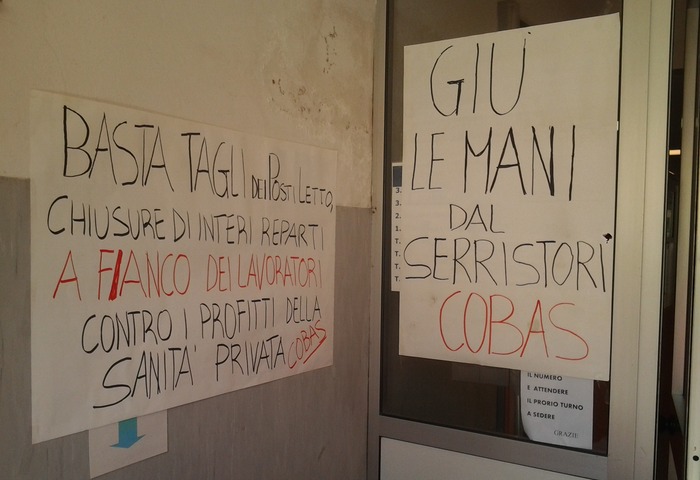 BASTA TAGLI DEI POSTI LETTO,
CHIUSURE DI INTERI REPARTI
A FIANCO DEI LAVORATORI
CONTRO I PROFITTI DELLA
SANITA' PRIVATA COBAS
GIÙ
LE MANI
DAL
SERRISTORI
COBAS
3.
3.
2.
1.
T.
T.
T.
T.
IL NUMERO
E ATTENDERE
IL PRORIO TURNO
A SEDERE
GRAZIE